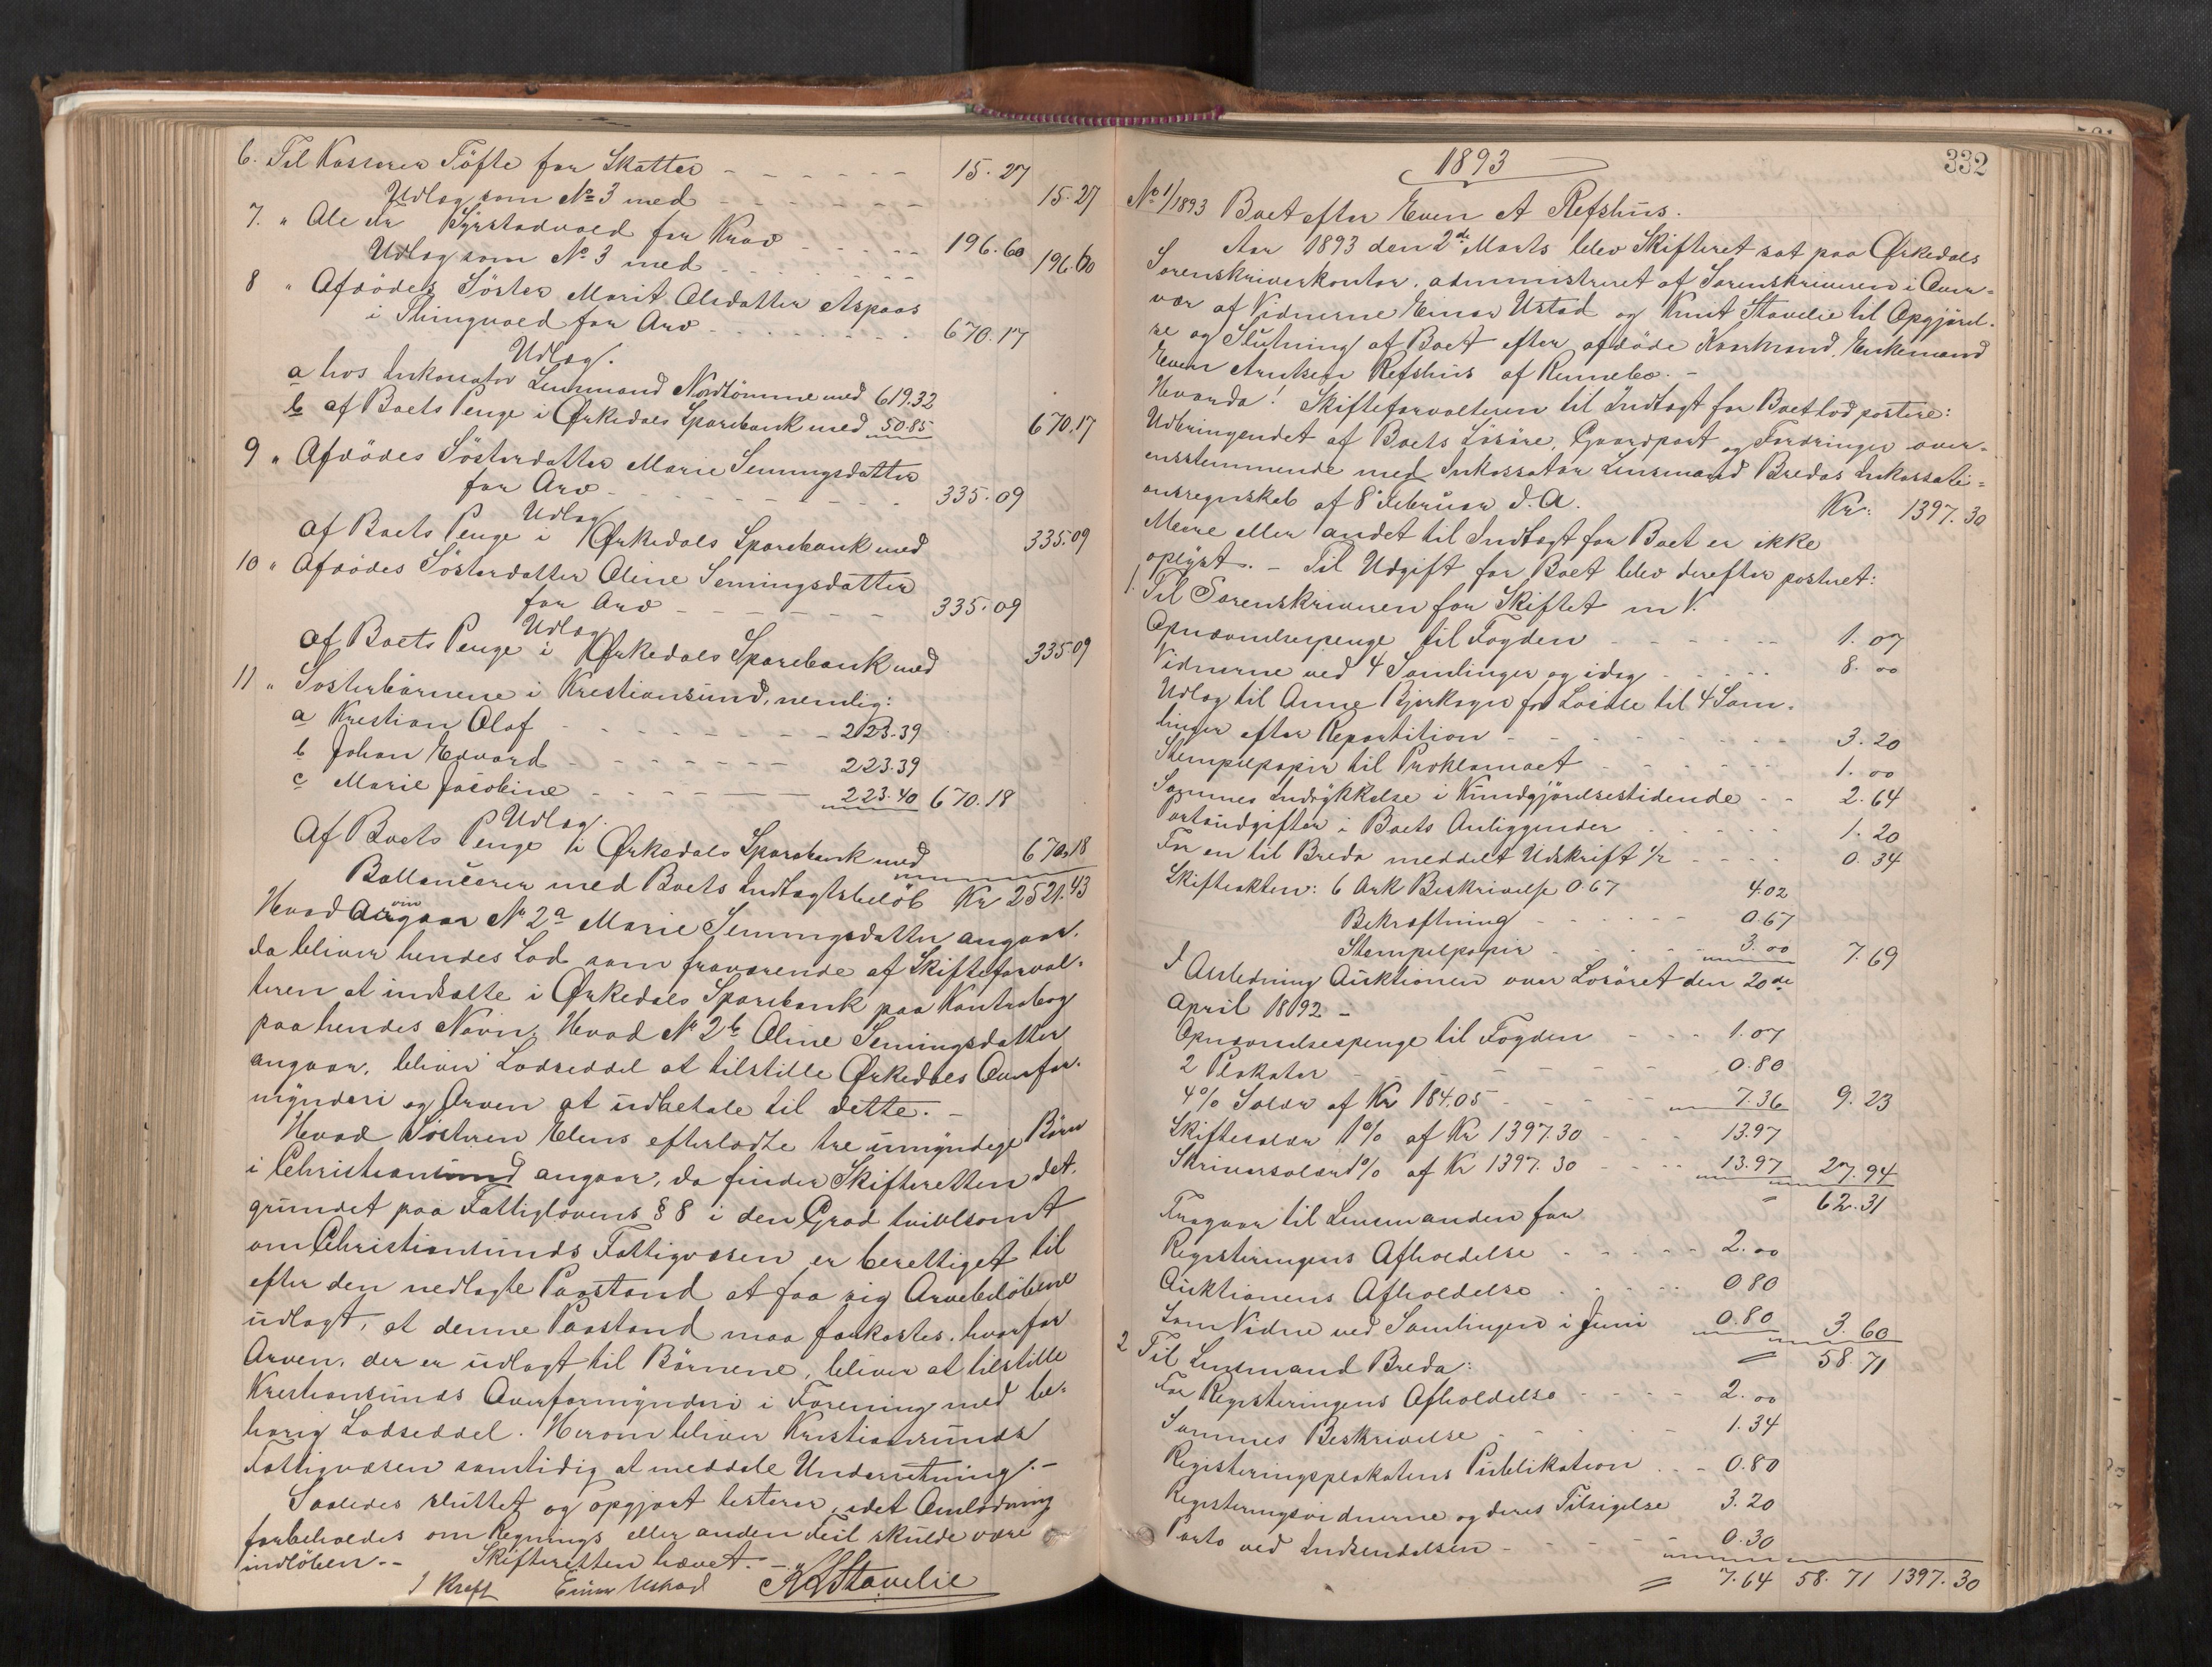 6. Til Kasserer Töfte for Skatter - - - - - - 15.27
Udlæg som No 3 med - - - - - - 15.27
7. " Ole Byrstadvold for Krav - - - - - 196.60
Udlæg som No 3 med - - - - - - 196.60
8 " Afdödes Söster Marit Olsdatter Aspaas
i Thingvold for Arv - - - - - - 670.17
Udlæg.
a hos Inkassator Lensmand Nordtömme med 619.32
b af Boets Penge i Ørkedals Sparebank med 50.85 670.17
9 " Afdödes Sösterdatter Marie Semmingsdatter
for Arv - - - - - - 335.09
Udlæg
af Boets Penge i Ørkedals Sparebank med 335.09
10 " Afdödes Sösterdatter Oline Semmingsdatter
for Arv - - - - - - 335.09
Udlæg
af Boets Penge i Ørkedals Sparebank med 335.09
11 " Sösterbörnene i Kristiansund, nemlig:
a Kristian Olaf - - - - - - 223.39
b Johan Edvard - - - - - - 223.39
c Marie Jacobine - - - - - - 223.40 670.18
Udlæg.
Af Boets Penge i Ørkedals Sparebank med 670.18
Ballancerer med Boets Indtægtsbelöb Kr 2521.43
Hvad No 2a Marie Semmingsdatter angaar,
da bliver hendes Lod som fraværende af Skifteforval-
teren at indsætte i Ørkedals Sparebank paa Kontrabog
paa hendes Navn. Hvad No 2b Oline Semmingsdatter
angaar, bliver Lodseddel at tilstille Ørkedals Overfor-
mynderi og Arven at udbetale til dette. -
Hvad Söstren Elens efterladte tre umyndige Börn
i Christiansund angaar, da finder Skifteretten det,
grundet paa Fattiglovens § 8 i den Grad tvivlsomt
om Christiansunds Fattigvæsen er berettiget til
efter den nedlagte Paastand at faa sig Arvebelöbene
udlagt, at denne Paastand maa forkastes, hvorfor
Arven, der er udlagt til Börnene, bliver at tilstille
Kristiansunds Overformynderi i Forening med be-
hörig Lodseddel. Herom bliver Kristiansunds
Fattigvæsen samtidig at meddele Underretning. -
Saaledes sluttet og opgjort testerer, idet Omlodning
forbeholdes om Regnings eller anden Feil skulde være
indlöben. - Skifteretten hævet. -
J Kraft Einar Ustad K Stavelie
332
1893
No 1/1893 Boet efter Even A Refshus.
Aar 1893 den 2de Marts blev Skifteret sat paa Ørkedals
Sorenskriverkontor, administreret af Sorenskriveren i Over-
vær af Vidnerne Einar Ustad og Knut Stavelie til Opgjörel-
se og Slutning af Boet efter afdöde Enkemand
Even Arntsen Refshus af Rennebo. -
Hvorda! Skifteforvalteren til Indtægt for Boet lod postere:
Udbringendet af Boets Lösöre, Gaardpart og Fordringer over-
ensstemmende med Inkassator Lensmand Bredas Inkassati-
onsregnskab af 8 Februar d. A. Kr: 1397.30
Mere eller andet til Indtægt for Boet er ikke
oplyst. - Til Udgift for Boet blev derefter posteret:
1. Til Sorenskriveren for Skiftet m V.
Opnævnelsespenge til Fogden - - - - - 1.07
Vidnerne ved 4 Samlinger og idag - - - - 8.00
Udlæg til Anne Bjerksgn for Losde til 4 Sam-
linger efter Repartition - - - - - - 3.20
Stempelpapir til Proklamaet - - - - - 1.00
Sammes Indrykkelse i Kundgjörelsestidende - - 2.64
Portoudgifter i Boets Anliggender - - - - 1.20
For en til Breda meddelt Udskrift 1/2 - - - - 0.34
Skifteakten: 6 Ark Beskrivelse 0.67 4.02
Bekræftning - - - - - 0.67
Stempelpapir - - - - - 3.00 7.69
I Anledning Auktionen over Lösöret den 20de
April 1892 -
Opnævnelsespenge til Fogden - - - 1.07
2 Plakater - - - - - - 0.80
4% Salær af Kr 184.05 - - - - 7.36 9.23
Skiftesalær 1% af Kr 1397.30 - - - 13.97
Skriversalær 1% af Kr 1397.30 - - - 13.97 27.94
= 62.31
Fragaar til Lensmanden for
Registeringens Afholdelse - - - - - 2.00
Auktionens Afholdelse - - - - - 0.80
Som Vidne ved Samlingen i Juni 0.80 3.60
= 58.71
2 Til Lensmand Breda:
For Registeringens Afholdelse - - - - 2.00
Sammes Beskrivelse - - - - - 1.34
Registeringsplakatens Publikation - - 0.80
Registeringsvidnerne og deres Tilsigelse 3.20
Porto ved Indsendelsen - - - - - 0.30
= 7.64 58.71 1397.30